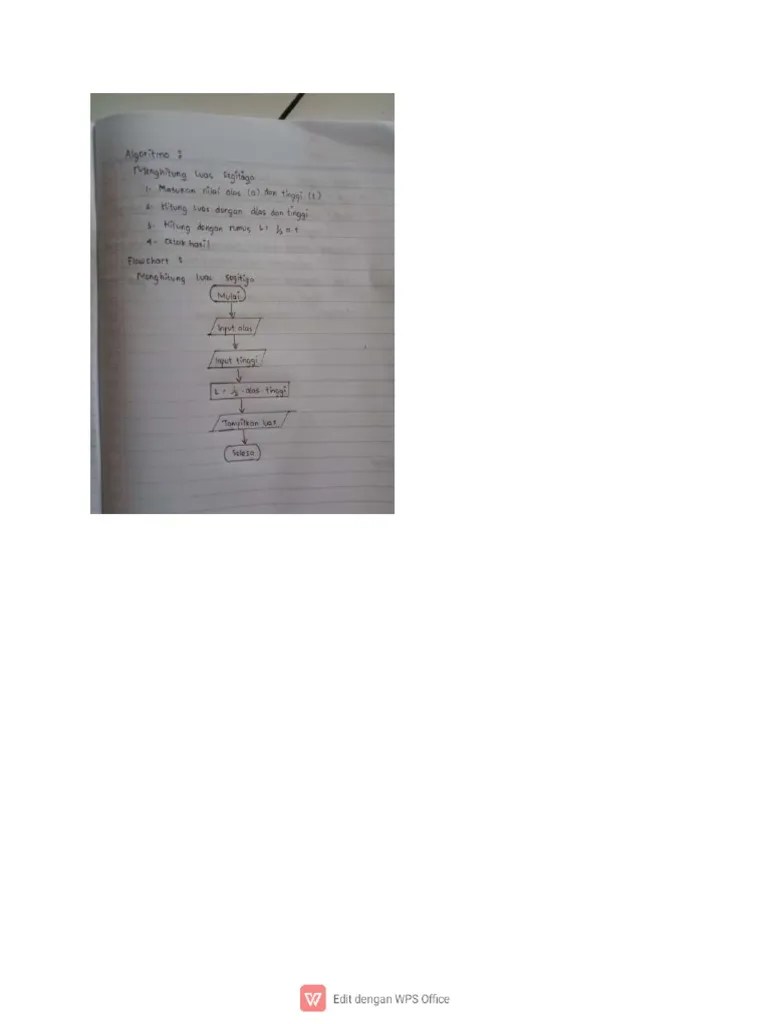 Algoritma :
Menghitung luas segitiga
1. Masukan nilai alas (a) dan tinggi (t)
2. Hitung luas dengan alas dan tinggi
3. Hitung dengan rumus L = ½ a.t
4. Cetak hasil
Flowchart :
Menghitung luas segitiga
Mulai
Input alas
Input tinggi
L = ½ . alas . tinggi
Tampilkan luas
Selesai
Edit dengan WPS Office